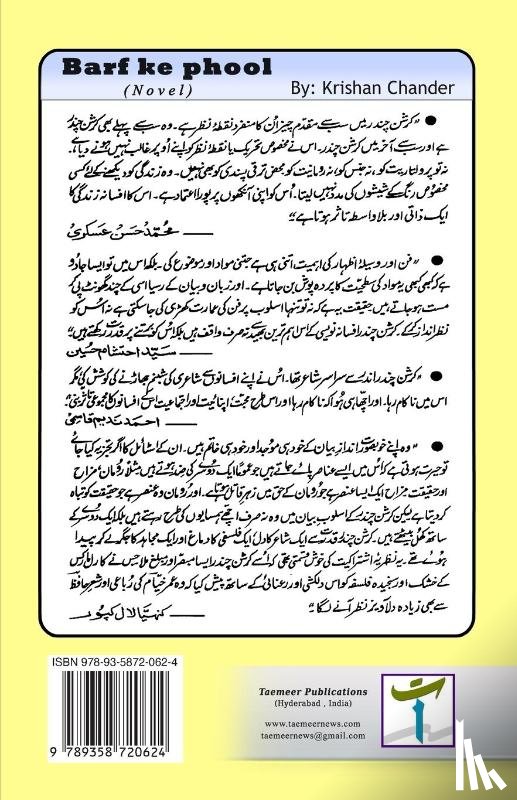 Barf ke phool
(Novel)
By: Krishan Chander
● "کرشن چندر میں سب سے مقدم چیز اُن کا منفرد نقطۂ نظر ہے۔ وہ سب سے پہلے بھی کرشن چندر
ہے اور سب سے آخر میں کرشن چندر۔ اس نے مخصوص تحریک یا نقطۂ نظر کو اپنے اُوپر غالب نہیں ہونے دیا ہے،
نہ تو پرولتاریت کو، نہ جنس کو، نہ رومانیت کو، محض ترقی پسندی کو بھی نہیں۔ وہ زندگی کو دیکھنے کے لئے کسی
مخصوص رنگ کے شیشوں کی مدد نہیں لیتا۔ اُس کو اپنی آنکھوں پر پورا اعتماد ہے۔ اس کا افسانہ زندگی کا
ایک ذاتی اور بلاواسطہ تاثر ہوتا ہے"
—— محمد حسن عسکری
● "فن اور وسیلۂ اظہار کی اہمیت اتنی ہی ہے جتنی مواد اور موضوع کی۔ بلکہ اس میں تو ایسا جادو
ہے کہ کبھی کبھی یہ مواد کی سطحیت کا پردہ پوش بن جاتا ہے۔ اور زبان و بیان کے رسیا اسی کے چند گھونٹ پی کر
مست ہو جاتے ہیں حقیقت یہ ہے کہ نہ تو تنہا اسلوب پر فن کی عمارت کھڑی کی جا سکتی ہے نہ اس کو
نظر انداز کر کے۔ کرشن چندر افسانہ نویسی کے اس اہم ترین بھید سے نہ صرف واقف ہیں بلکہ اس کو برتنے پر قدرت رکھتے ہیں"
—— سید احتشام حسین
● "کرشن چندر اندر سے سراسر شاعر تھا۔ اُس نے اپنے افسانوں میں شاعری کی شبنم جھاڑنے کی کوشش کی مگر
اس میں ناکام رہا۔ اور اچھا ہی ہوا کہ ناکام رہا اور اس طرح محبت، اپنائیت اور اجتماعیت اس کے افسانوں کا مجموعی تاثر بنی"
—— احمد ندیم قاسمی
● "وہ اپنے خوبصورت انداز بیان کے خود ہی موجد اور خود ہی خاتم ہیں۔ ان کے اسٹائل کا اگر تجزیہ کیا جائے
تو حیرت ہوتی ہے کہ اس میں ایسے عناصر پائے جاتے ہیں جو عموماً ایک دوسرے کی ضد ہوتے ہیں مثلاً رومان، مزاح
اور حقیقت مزاح ایک ایسا عنصر ہے جو رومان کے حق میں زہر قاتل ہوتا ہے۔ اور رومان وہ عنصر ہے جو حقیقت کو تباہ
کر دیتا ہے لیکن کرشن چندر کے اسلوب بیان میں وہ نہ صرف اچھے ہمسایوں کی طرح رہتے ہیں بلکہ ایک دوسرے کے
ساتھ گھل مل بیٹھتے ہیں۔ کرشن چندر قدرت سے ایک شاعر کا دل، ایک فلسفی کا دماغ اور ایک مجاہد کا جگر لے کر پیدا
ہوئے تھے۔ یہ نظریۂ اشتراکیت کی خوش قسمتی تھی کہ اُسے کرشن چندر ایسا مبصر اور مبلغ ملا جس نے کارل مارکس
کے خشک اور سنجیدہ فلسفہ کو اس دلکشی اور رعنائی کے ساتھ پیش کیا کہ وہ عمر خیام کی رباعی اور شعر حافظ
سے بھی زیادہ دلآویز نظر آنے لگا۔"
—— کنہیا لال کپور
ISBN 978-93-5872-062-4
9 789358 720624
Taemeer Publications
(Hyderabad , India)
www.taemeernews.com
taemeernews@gmail.com